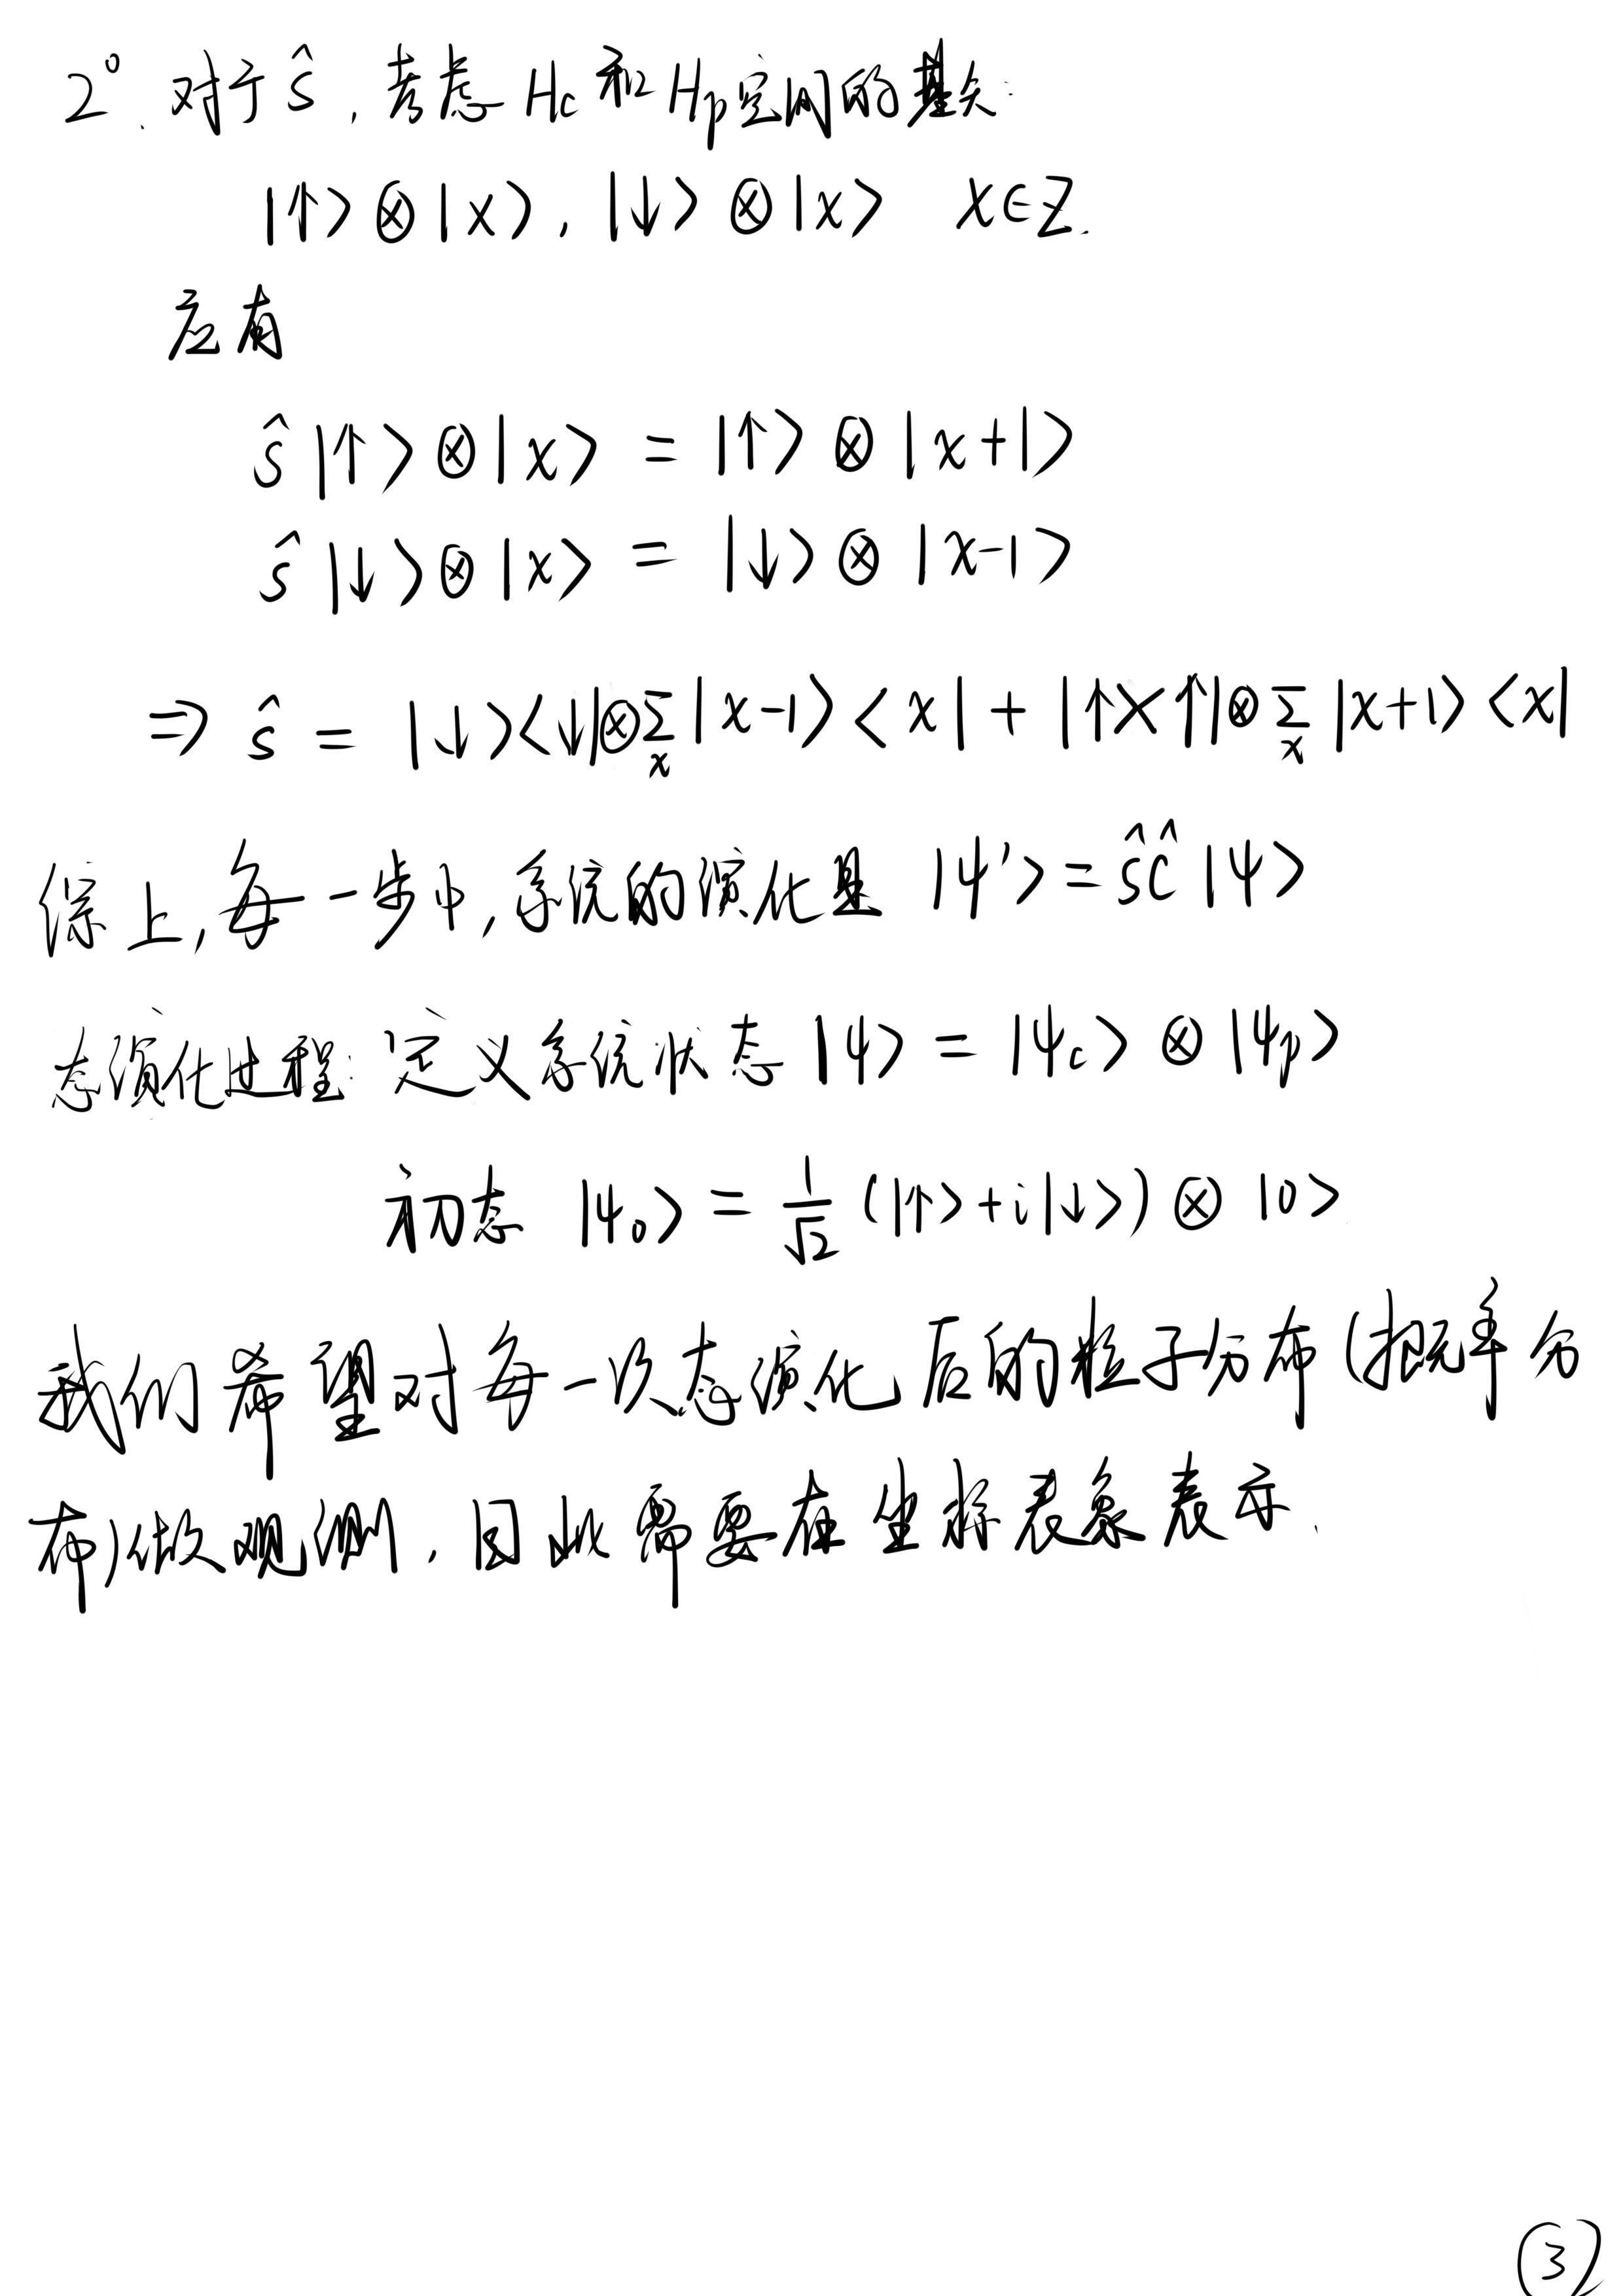 2°. 对于ŝ,考虑Hc和Hp空间的基矢.
|↑>⊗|x>, |↓>⊗|x> x∈Z.
应有
ŝ|↑>⊗|x> = |↑>⊗|x+1>
ŝ|↓>⊗|x> = |↓>⊗|x-1>
⇒ ŝ = |↓><↓|⊗∑ₓ|x-1><x| + |↑><↑|⊗∑ₓ|x+1><x|
综上,每一步中,系统的演化是 |ψ'> = ŝĉ|ψ>
态演化过程: 定义系统状态 |ψ> = |ψc>⊗|ψp>
初态 |ψ₀> = 1/√2 (|↑>+i|↓>)⊗|0>
我们希望对每一次态演化后的粒子分布(概率分
布)做观测,因此需要在坐标表象表示.
③